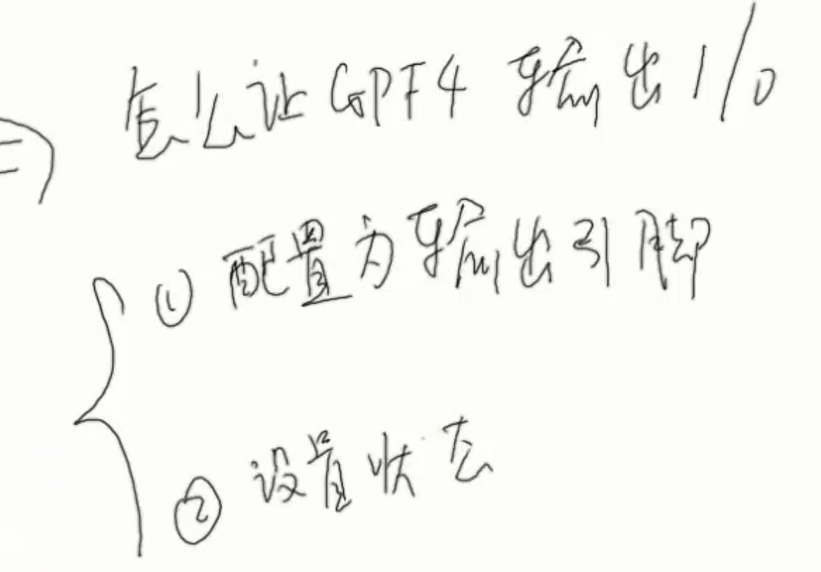 怎么让GPF4 输出1/0
① 配置为输出引脚
② 设置状态